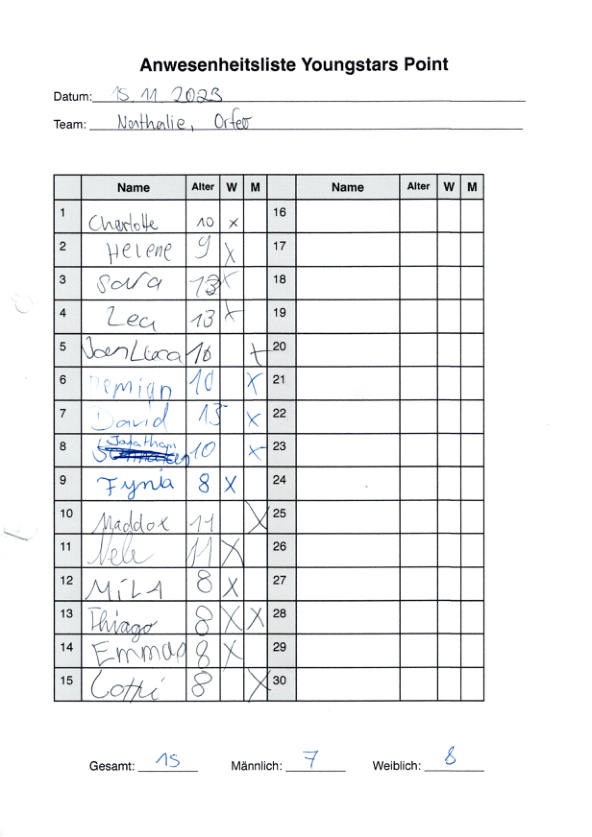 Anwesenheitsliste Youngstars Point
Datum: 15.11.2023
Team: Nathalie, Orfeo
Name Alter W M Name Alter W M
1 Charlotte 10 x 16
2 Helene 9 x 17
3 Sara 13 x 18
4 Lea 13 x 19
5 Luca 10 x 20
6 Demian 10 x 21
7 David 13 x 22
8 Jonathan 10 x 23
9 Fynia 8 x 24
10 Maddox 11 x 25
11 Nele 11 x 26
12 MiLA 8 x 27
13 Thiago 8 x x 28
14 Emma 8 x 29
15 8 x 30
Gesamt: 15 Männlich: 7 Weiblich: 8